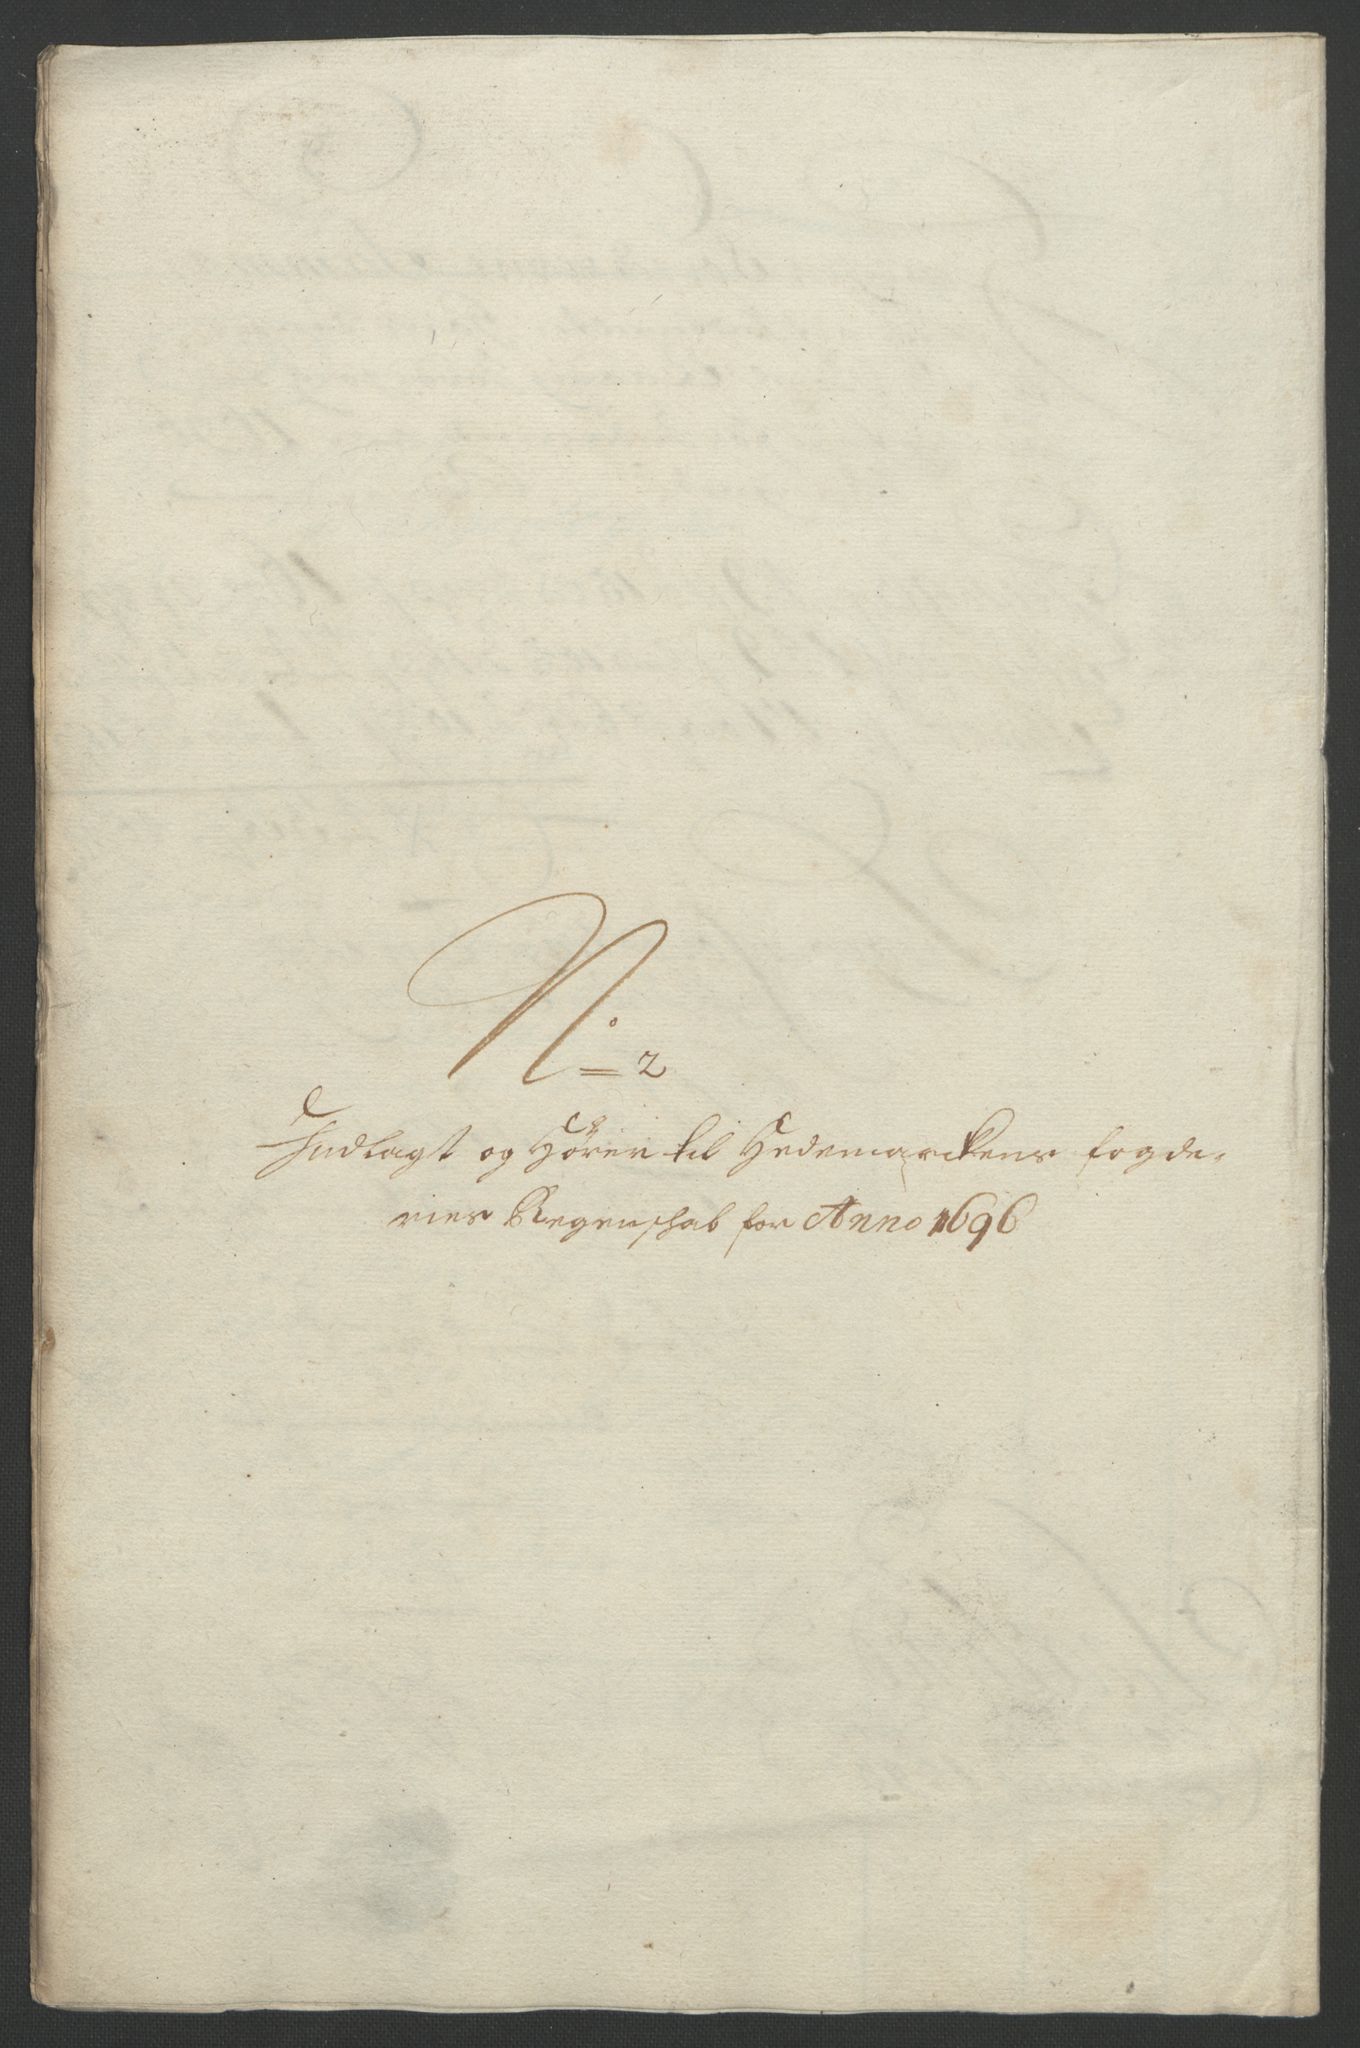 No. 2
Indlagt og Hører til Hedemarckens fogde-
ries Regenschab for Anno 1696